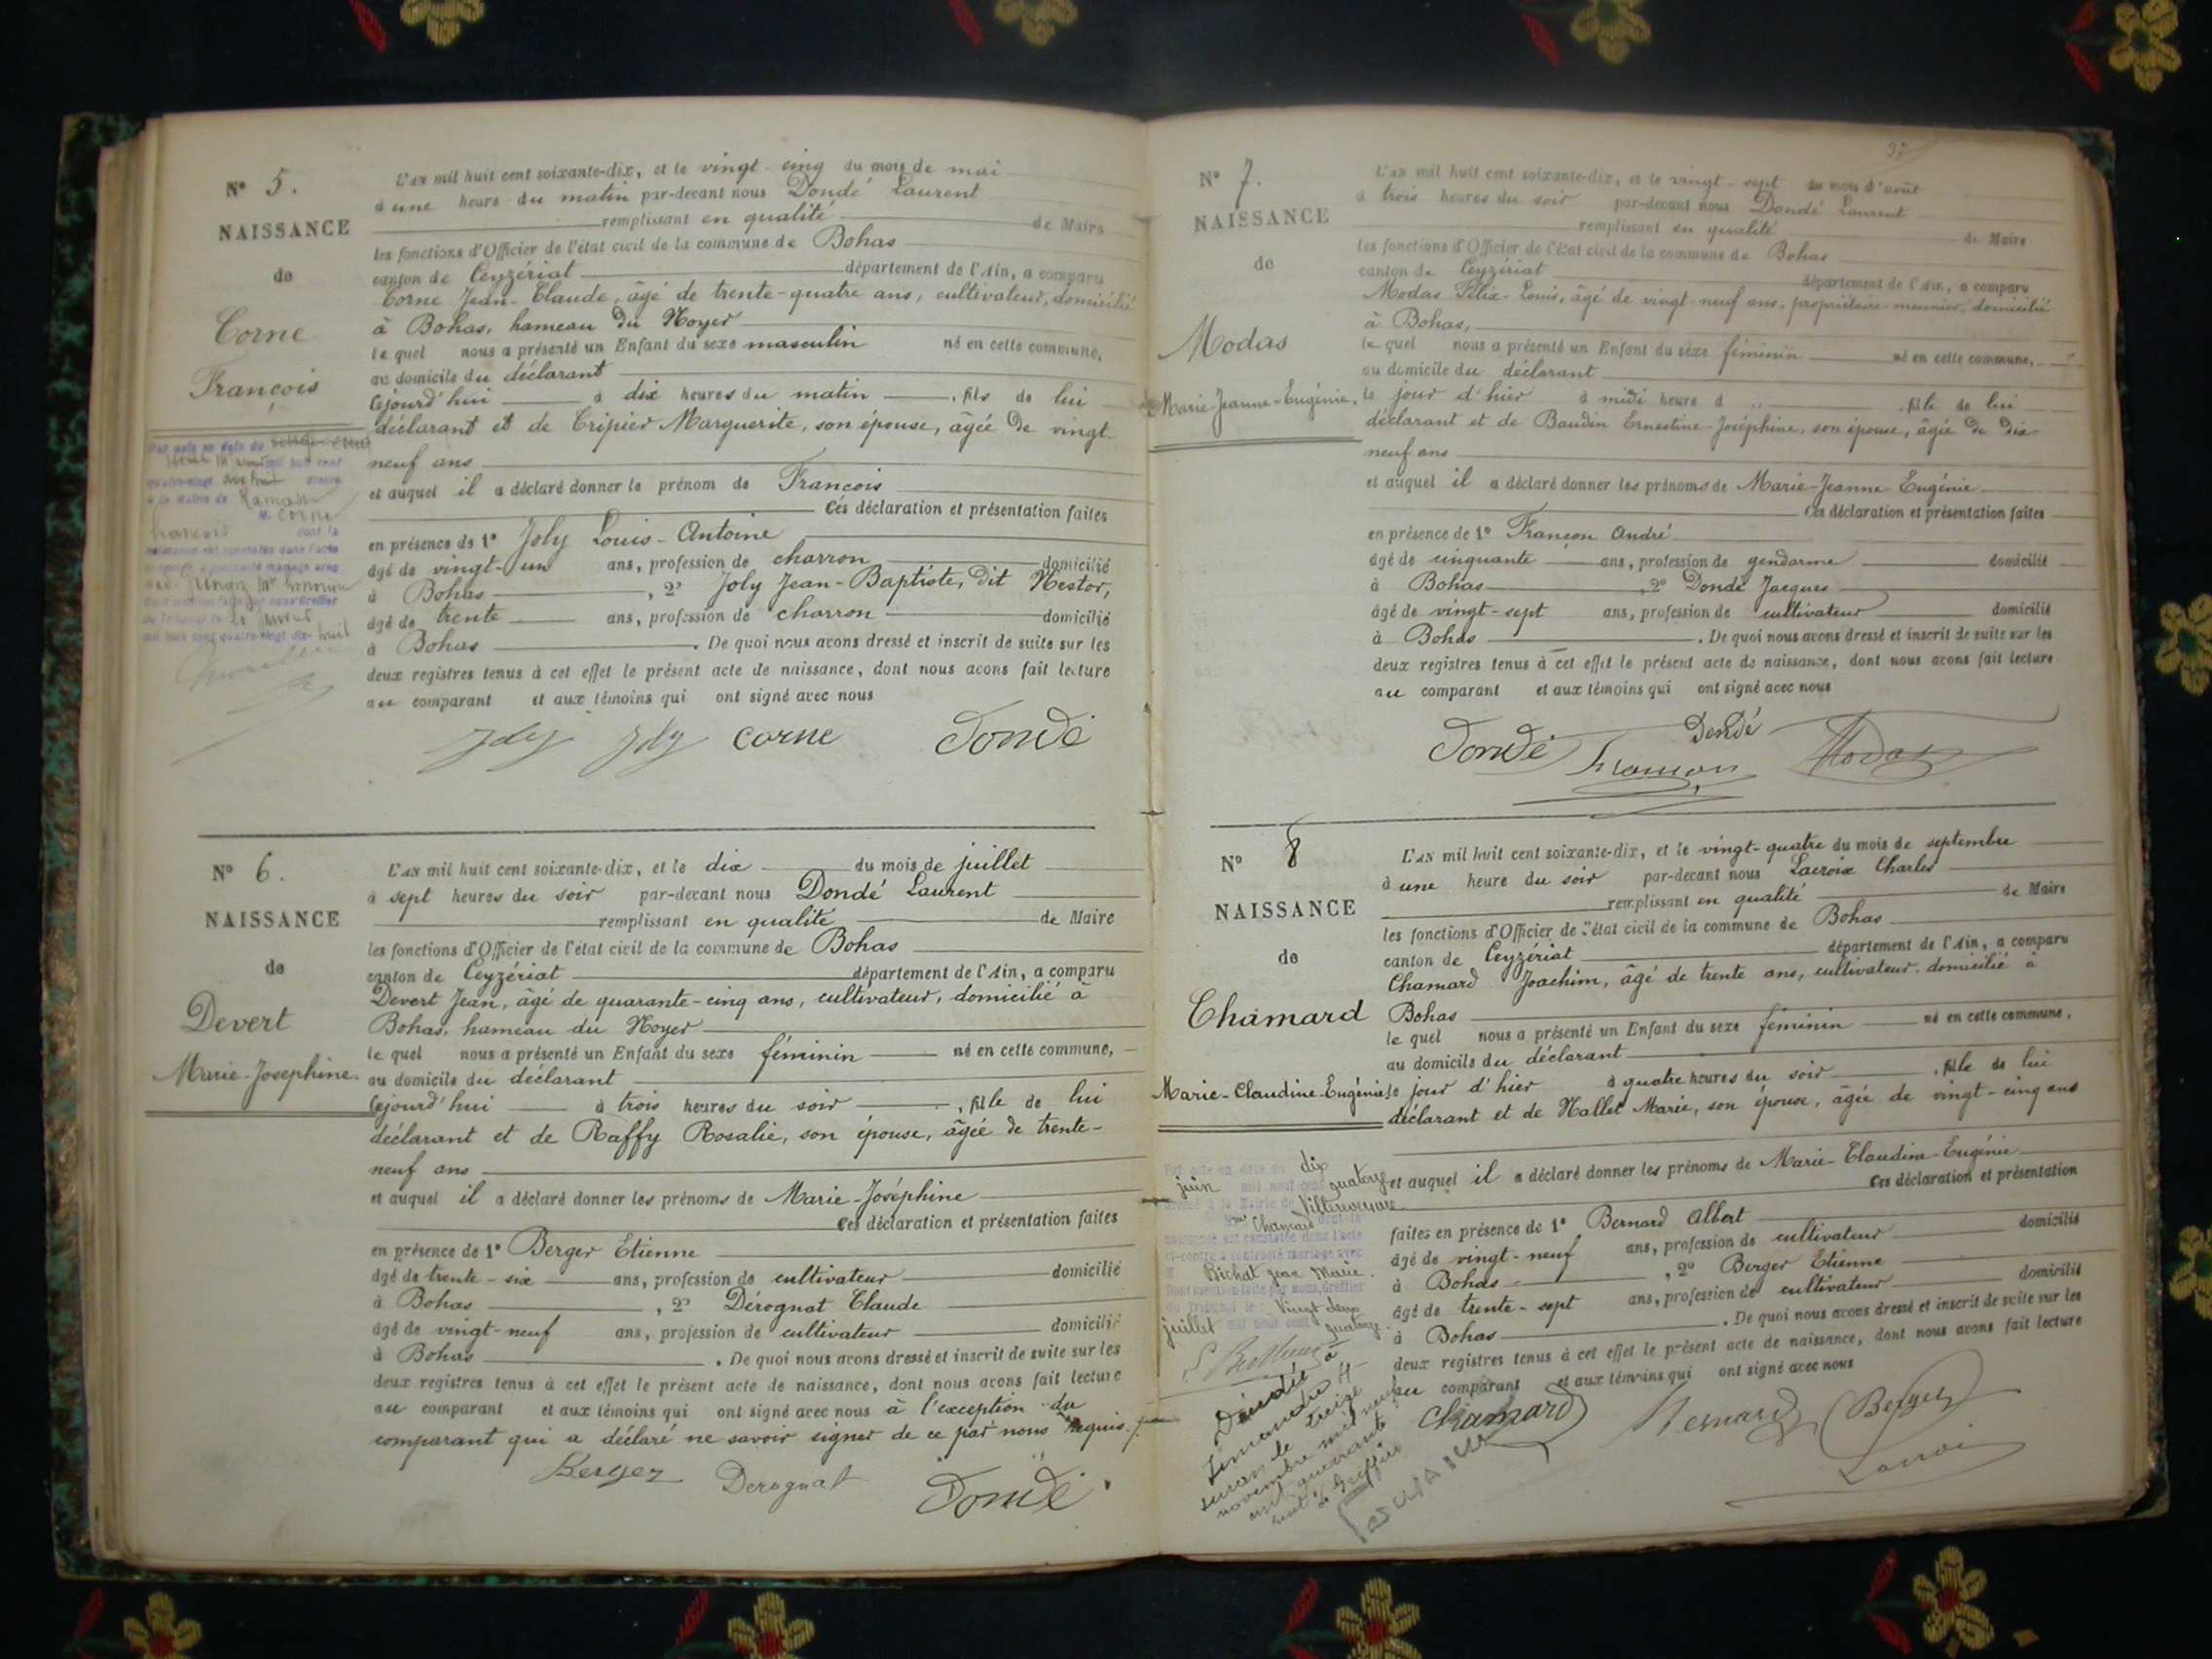 N° 5.
NAISSANCE
de
Corne
François
L'AN mil huit cent soixante-dix, et le vingt-cinq du mois de mai
à une heure du matin par-devant nous Dondé Laurent
remplissant en qualité de Maire
les fonctions d'Officier de l'état civil de la commune de Bohas
canton de Ceyzériat département de l'Ain, a comparu
Corne Jean-Claude, âgé de trente-quatre ans, cultivateur, domicilié
à Bohas, hameau du Noyer
le quel nous a présenté un Enfant du sexe masculin né en cette commune,
au domicile du déclarant
cejourd'hui à dix heures du matin, fils de lui
déclarant et de Tripier Marguerite, son épouse, âgée de vingt-
neuf ans
et auquel il a déclaré donner le prénom de François
Ces déclaration et présentation faites
en présence de 1° Joly Louis-Antoine
âgé de vingt-un ans, profession de charron domicilié
à Bohas, 2° Joly Jean-Baptiste, dit Nestor,
âgé de trente ans, profession de charron domicilié
à Bohas. De quoi nous avons dressé et inscrit de suite sur les
deux registres tenus à cet effet le présent acte de naissance, dont nous avons fait lecture
au comparant et aux témoins qui ont signé avec nous
Joly Joly Corne Dondé
Par acte en date du
mil huit cent
quatre-vingt dix huit dressé
à la Mairie de Ramasse
M. Corne
François dont la
naissance est constatée dans l'acte
ci-contre a contracté mariage avec
dont mention faite par nous Greffier
du Tribunal le
mil huit cent quatre-vingt dix-huit
N° 6.
NAISSANCE
de
Devert
Marie-Josephine.
L'AN mil huit cent soixante-dix, et le dix du mois de juillet
à sept heures du soir par-devant nous Dondé Laurent
remplissant en qualité de Maire
les fonctions d'Officier de l'état civil de la commune de Bohas
canton de Ceyzériat département de l'Ain, a comparu
Devert Jean, âgé de quarante-cinq ans, cultivateur, domicilié à
Bohas, hameau du Noyer
le quel nous a présenté un Enfant du sexe féminin né en cette commune,
au domicile du déclarant
cejourd'hui à trois heures du soir, fille de lui
déclarant et de Raffy Rosalie, son épouse, âgée de trente-
neuf ans
et auquel il a déclaré donner les prénoms de Marie-Joséphine
Ces déclaration et présentation faites
en présence de 1° Berger Etienne
âgé de trente-six ans, profession de cultivateur domicilié
à Bohas, 2° Dérognat Claude
âgé de vingt-neuf ans, profession de cultivateur domicilié
à Bohas. De quoi nous avons dressé et inscrit de suite sur les
deux registres tenus à cet effet le présent acte de naissance, dont nous avons fait lecture
au comparant et aux témoins qui ont signé avec nous à l'exception du
comparant qui a déclaré ne savoir signer de ce par nous requis.
Berger Derognat Dondé
N° 7.
NAISSANCE
de
Modas
Marie-Jeanne-Eugénie.
L'AN mil huit cent soixante-dix, et le vingt-sept du mois d'août
à trois heures du soir par-devant nous Dondé Laurent
remplissant en qualité de Maire
les fonctions d'Officier de l'état civil de la commune de Bohas
canton de Ceyzériat département de l'Ain, a comparu
Modas Félix-Louis, âgé de vingt-neuf ans, propriétaire meunier, domicilié
à Bohas,
le quel nous a présenté un Enfant du sexe féminin né en cette commune,
au domicile du déclarant
le jour d'hier à midi heure à, fille de lui
déclarant et de Baudin Ernestine-Joséphine, son épouse, âgée de dix
neuf ans
et auquel il a déclaré donner les prénoms de Marie-Jeanne Eugénie
Ces déclaration et présentation faites
en présence de 1° Françon André
âgé de cinquante ans, profession de gendarme domicilié
à Bohas, 2° Dondé Jacques
âgé de vingt-sept ans, profession de cultivateur domicilié
à Bohas. De quoi nous avons dressé et inscrit de suite sur les
deux registres tenus à cet effet le présent acte de naissance, dont nous avons fait lecture
au comparant et aux témoins qui ont signé avec nous
Dondé Françon Dondé Modas
N° 8
NAISSANCE
de
Chamard
Marie-Claudine-Eugénie
L'AN mil huit cent soixante-dix, et le vingt-quatre du mois de septembre
à une heure du soir par-devant nous Lacroix Charles
remplissant en qualité de Maire
les fonctions d'Officier de l'état civil de la commune de Bohas
canton de Ceyzériat département de l'Ain, a comparu
Chamard Joachim, âgé de trente ans, cultivateur, domicilié à
Bohas
le quel nous a présenté un Enfant du sexe féminin né en cette commune,
au domicile du déclarant
le jour d'hier à quatre heures du soir, fille de lui
déclarant et de Nallet Marie, son épouse, âgée de vingt-cinq ans
et auquel il a déclaré donner les prénoms de Marie-Claudine-Eugénie
Ces déclaration et présentation
faites en présence de 1° Bernard Albert
âgé de vingt-neuf ans, profession de cultivateur domicilié
à Bohas, 2° Berger Etienne
âgé de trente-sept ans, profession de cultivateur domicilié
à Bohas. De quoi nous avons dressé et inscrit de suite sur les
deux registres tenus à cet effet le présent acte de naissance, dont nous avons fait lecture
au comparant et aux témoins qui ont signé avec nous
Chamard Bernard Berger
Lacroix
Par acte en date du dix
juin mil neuf cent quatorze
dressé à la Mairie de Villereversure
Chamard dont la
naissance est constatée dans l'acte
ci-contre a contracté mariage avec
M Bichat Jean Marie.
Dont mention faite par nous, Greffier
du Tribunal le Vingt deux
juillet mil neuf cent quatorze.
Décédée à
Simandre s/
Suran le treize
novembre mil neuf
cent quarante
huit Le Greffier